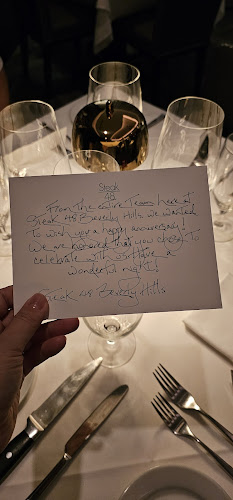 Steak
48
From the entire Team here at
Steak 48 Beverly Hills we wanted
to wish you a happy anniversary!
We are honored that you chose to
celebrate with us! Have a
wonderful night!
Steak 48 Beverly Hills